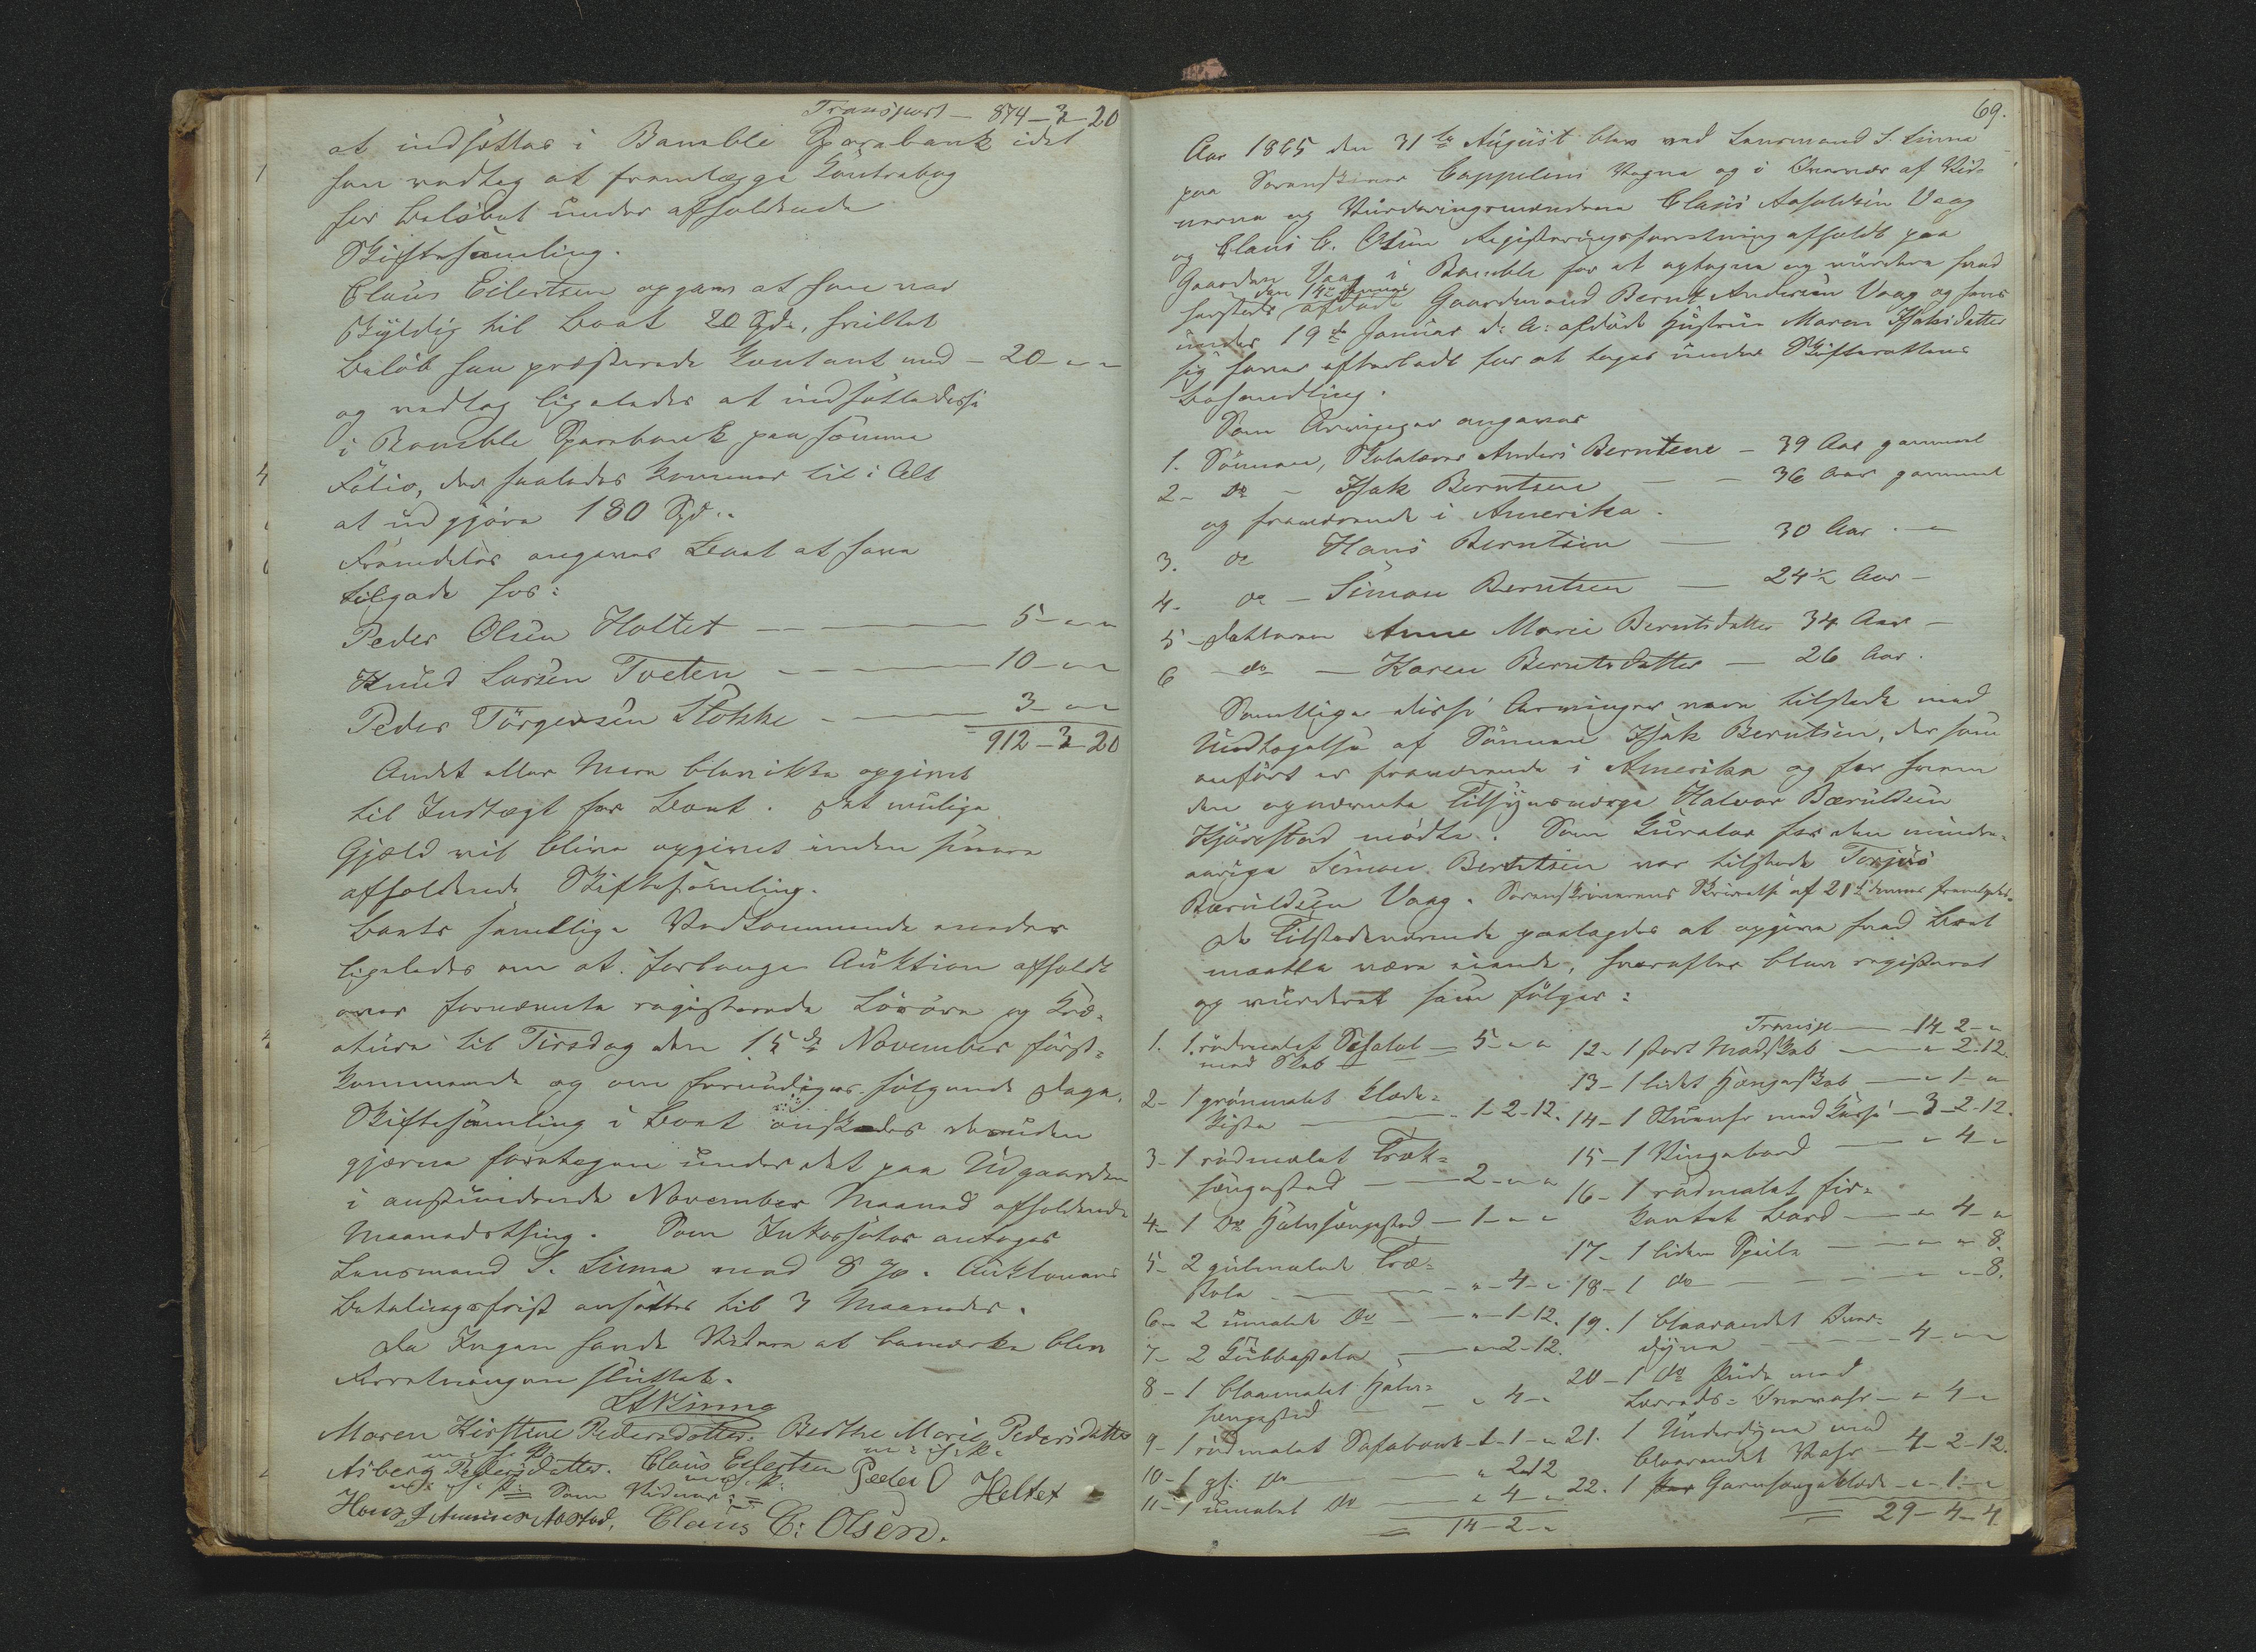 Transport - 874-3-20
at indsættes i Bamble Sparebank idet
han vedtog at fremlægge Contrabog
for Beløbet under afholdende
Skiftesamling.
Claus Eilertsen opgav at han var
skyldig til Boet 20 Spd., hvilket
Beløb han præsterede Contant med - 20 - " - "
og vedtog ligeledes at indsætte disse
i Bamble Sparebank paa samme
Folio, der saaledes kommer til i Alt
at udgjøre 180 Spd..
Fremdeles angaves Boet at have
tilgode hos:
Peder Olsen Holtet - 5 - " - "
Knud Larsen Tveten - 10 - " - "
Peder Törgersen Stokke - 3 - " - "
912 - 3 - 20
Andet eller Mere blev ikke opgivet
til Indtægt for Boet. Det mulige
Gjæld vil blive opgivet inden
afholdende Skiftesamling.
Boets samtlige Vedkommende
ligeledes om at forlange Auktion afholdt
over fornævnte registerede Lösöre og Kre-
ature til Tirsdag den 15de November först-
kommende og om fornødiges følgende Dage.
Skiftesamling i Boet önskedes desuden
gjerne foretagen under det paa Udgaarden
i anstundende November Maaned afholdende
Maanedsthing. Som Inkassator antages
Lensmand S. Linna mod 8 %. Auktionens
Betalingsfrist ansættes til 3 Maaneder.
Da Ingen havde Videre at bemærke blev
Forretningen sluttet.
Maren Kirstine Pedersdatter. Berthe Marie Pedersdatter
m. i. f. P.
Asberg Pedersdatter. Claus Eilertsen Peder O Holtet
m. i. f. P. Som Vidner:
Claus C: Olsen.
69.
Aar 1865 den 31te August blev ved Lensmand S. Linna
paa Sorenskriver Cappelens Vegne og i Overvær af Vid-
nerne og Vurderingsmændene Claus Aasoldsen Vaag
og Claus C. Olsen Registeringsforretning afholdt paa
Gaarden Vaag i Bamble for at optegne og vurdere hvad
sammesteds afdöde Gaardmand Bernt Andersen Vaag og hans
under 19de Januar d: A: afdöde Hustru Maren Isaksdatter
sig haver efterladt for at tages under Skifterettens
Behandling.
Som Arvinger angaves
1. Sönnen, Skolelærer Anders Berntsen - 39 Aar gammel
2 - do - Isak Berntsen - - 36 Aar gammel
og fraværende i Amerika.
3. do Hans Berntsen - 30 Aar. -
4 - do - Simon Berntsen - 24½ Aar -
5 - Datteren Anne Marie Berntsdatter 34 Aar -
6 - do - Karen Berntsdatter - 26 Aar.
Samtlige disse Arvinger vare tilstede med
Undtagelse af Sönnen Isak Berntsen, der som
anfört er fraværende i Amerika og for hvem
den opnævnte Tilsynsværge Halvor Bærulsen
Hjörestad mödte. Som Curator for den minder-
aarige Simon Berntsen var tilstede Torjus
Bærulsen Vaag. Sorenskriverens Skrivelse af 21de dennes fremlagdes.
De Tilstedeværende paalagdes at opgive hvad Boet
maatte være eiende, hvorefter blev registeret
og vurderet som fölger:
1. 1 rödmalet Schatol med Skab - 5 - " - "
2 - 1 grönmalet Klæde-
kiste - 1 - 2 - 12.
3 - 1 rödmalet Træk-
sengested - 2 - " - "
4 - 1 do Halvsengested - 1 - " - "
5 - 2 gulmalede Træ-
stole - " - 4 - "
6 - 2 umalede do - " - 1 - 12.
7 - 2 Gubbestole - " - 2 - 12.
8 - 1 blaamalet Halv-
sengested - " - 4 - "
9 - 1 rödmalet Sofabænk - 1 - 1 - "
10 - 1 gl. do - " 2 - 12
11 - 1 umalet do - " 4 - "
= 14 - 2 - "
Transp - 14 - 2 - "
12 - 1 stort Madskab - " - 2 - 12.
13 - 1 lidet Hængeskab - " - 1 - "
14 - 1 Stueuhr med Kasse - 3 - 2 - 12.
15 - 1 Vingebord - " - 4 - "
16 - 1 rödmalet fir-
kantet Bord - " - 4 - "
17 - 1 liden Speile - " - " - 8.
18 - 1 do - " - " - 8.
19. 1 blaarandet Over-
dyne - 4 - " - "
20 - 1 do Pude med
Lærreds- Overvahr - " - 4 - "
21. 1 Underdyne med
blaarandet Vahr - 4 - 2 - 12.
22. 1 Garnsengeklæde - " - 1 - "
= 29 - 4 - 4.